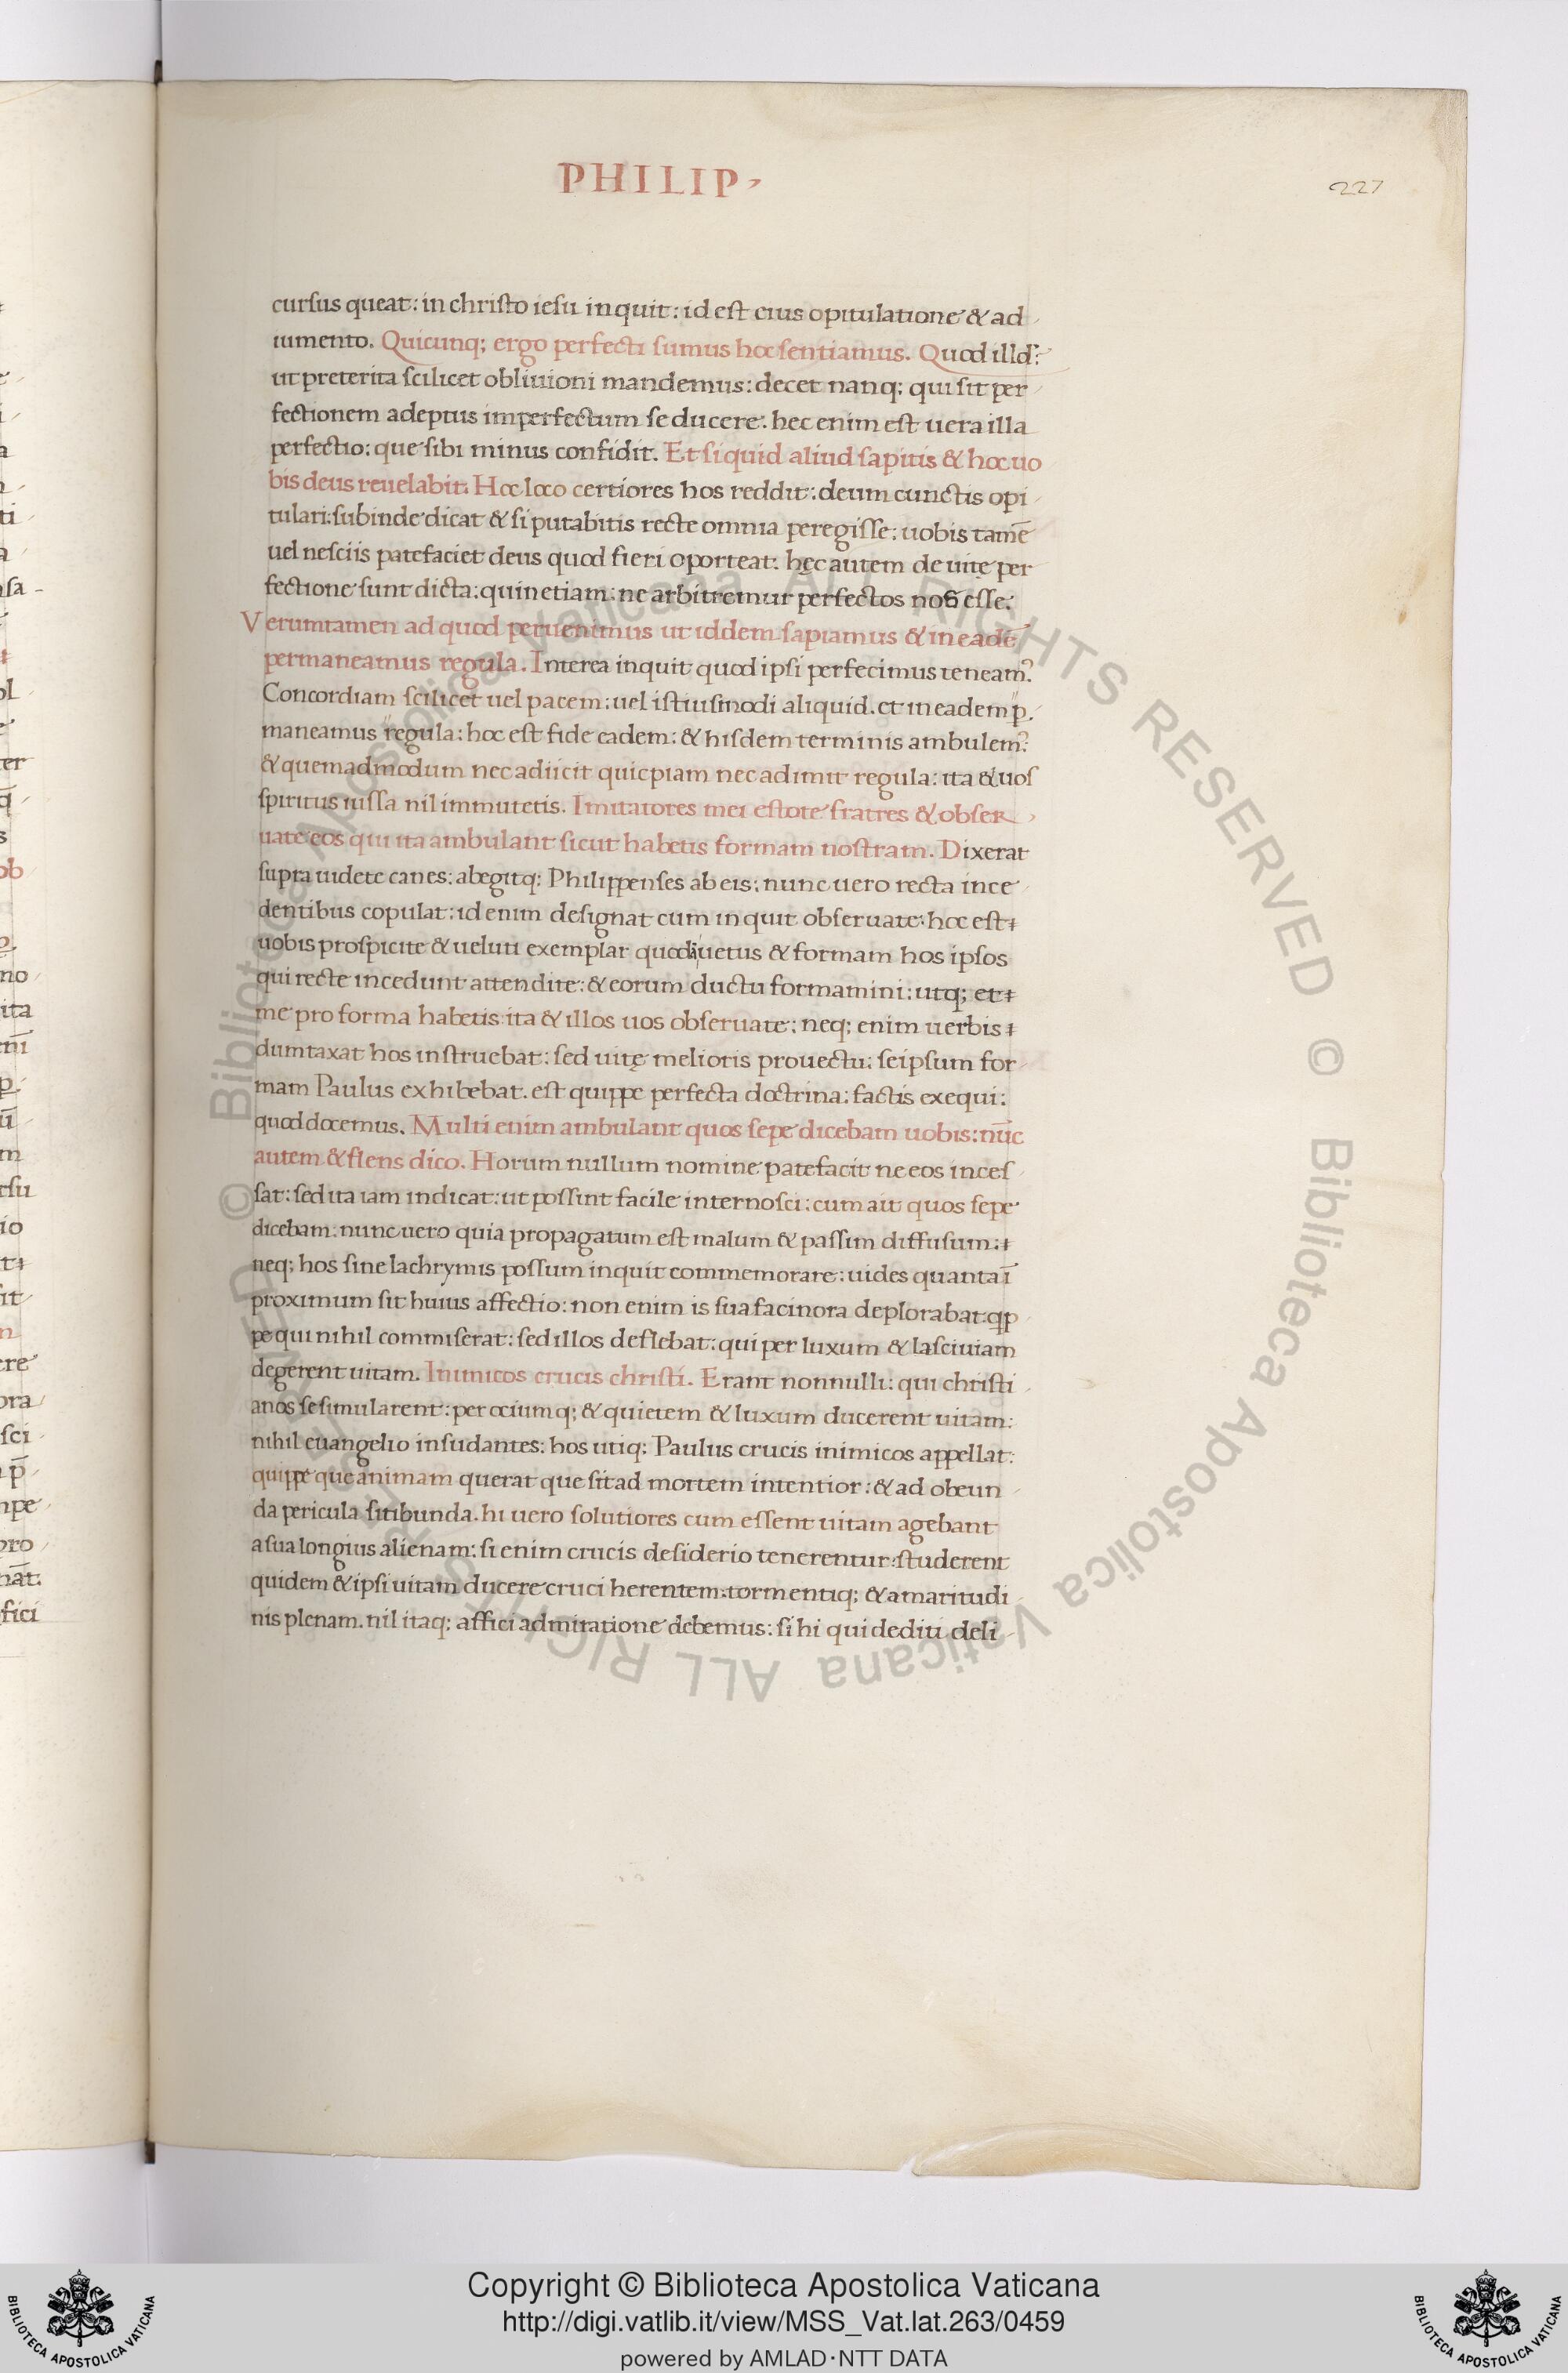 PHILIP
227
cursus queat: in christo iesu inquit: id est eius opitulatione & ad
iumento. Quicunq; ergo perfecti sumus hoc sentiamus. Quod illd:
ut preterita scilicet obliuioni mandemus: decet nanq; qui sit per
fectionem adeptus imperfectum se ducere: hec enim est uera illa
perfectio: que sibi minus confidit. Et si quid aliud sapitis & hoc uo
bis deus reuelabit. Hoc loco certiores hos reddit: deum cunctis opi
tulari: subinde dicat & si putabitis recte omnia peregisse: uobis tamē
uel nesciis patefaciet deus quod fieri oporteat. hęc autem de uitę per
fectione sunt dicta: quin etiam: ne arbitremur perfectos nos esse.
Veruntamen ad quod peruenimus ut iddem sapiamus & in eadē
permaneamus regula. Interea inquit quod ipsi perfecimus teneam⁹.
Concordiam scilicet uel pacem: uel istiusmodi aliquid. et in eadem p̱
maneamus regula: hoc est fide eadem: & hisdem terminis ambulem⁹:
& quemadmodum nec adiicit quicpiam nec adimit regula: ita & uos
spiritus iussa nil immutetis. Imitatores mei estote fratres & obser
uate eos qui ita ambulant sicut habetis formam nostram. Dixerat
supra uidete canes: abegitq; Philippenses ab eis: nunc uero recta ince
dentibus copulat: id enim designat cum inquit obseruate: hoc est
uobis prospicite & ueluti exemplar quoddā uetus & formam hos ipsos
qui recte incedunt attendite: & eorum ductu formamini: utq; et
me pro forma habetis: ita & illos uos obseruate: neq; enim uerbis
dumtaxat hos instruebat: sed uitę melioris prouectu: seipsum for
mam Paulus exhibebat. est quippe perfecta doctrina: factis exequi:
quod docemus. Multi enim ambulant quos sepe dicebam uobis: nūc
autem & flens dico. Horum nullum nomine patefacit ne eos inces
sat: sed ita iam indicat: ut possint facile internosci: cum ait quos sepe
dicebam: nunc uero quia propagatum est malum & passim diffusum:
neq; hos sine lachrymis possum inquit commemorare: uides quanta ī
proximum sit huius affectio: non enim is sua facinora deplorabat: qp
pe qui nihil commiserat: sed illos deflebat: qui per luxum & lasciuiam
degerent uitam. Inimicos crucis christi. Erant nonnulli: qui christi
anos se simularent: per ociumq; & quietem & luxum ducerent uitam:
nihil euangelio insudantes: hos utiq; Paulus crucis inimicos appellat:
quippe que animam querat que sit ad mortem intentior: & ad obeun
da pericula sitibunda. hi uero solutiores cum essent uitam agebant
a sua longius alienam: si enim crucis desiderio tenerentur: studerent
quidem & ipsi uitam ducere cruci herentem: tormentiq; & amaritudi
nis plenam. nil itaq; affici admiratione debemus: si hi qui dediti deli
Copyright © Biblioteca Apostolica Vaticana
http://digi.vatlib.it/view/MSS_Vat.lat.263/0459
powered by AMLAD·NTT DATA
© Biblioteca Apostolica Vaticana ALL RIGHTS RESERVED © Biblioteca Apostolica Vaticana ALL RIGHTS RESERVED
BIBLIOTECA APOSTOLICA VATICANA
BIBLIOTECA APOSTOLICA VATICANA